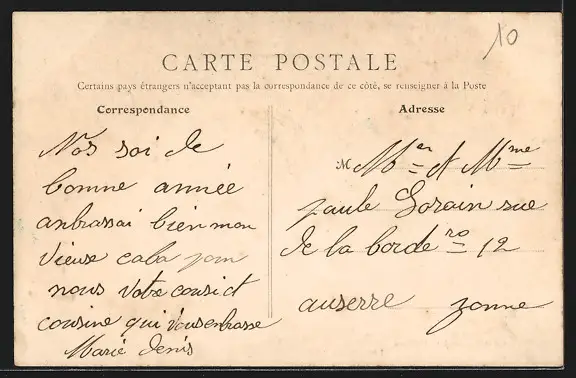 10
CARTE POSTALE
Certains pays étrangers n'acceptant pas la correspondance de ce côté, se renseigner à la Poste
Correspondance
Nos soi de
bonne année
anbrassai bien mon
vieux caba pour
nous votre cousi et
cousine qui vous enbrasse
Marie Denis
Adresse
M Mer et Mme
paule Lorain rue
de la borde no 12
auserre yonne